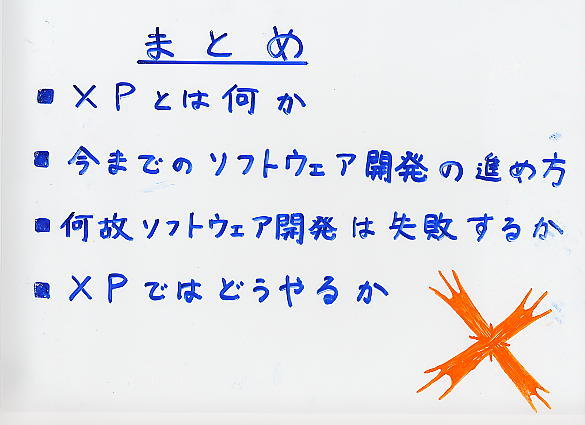 まとめ
■ XPとは何か
■ 今までのソフトウェア開発の進め方
■ 何故ソフトウェア開発は失敗するか
■ XPではどうやるか